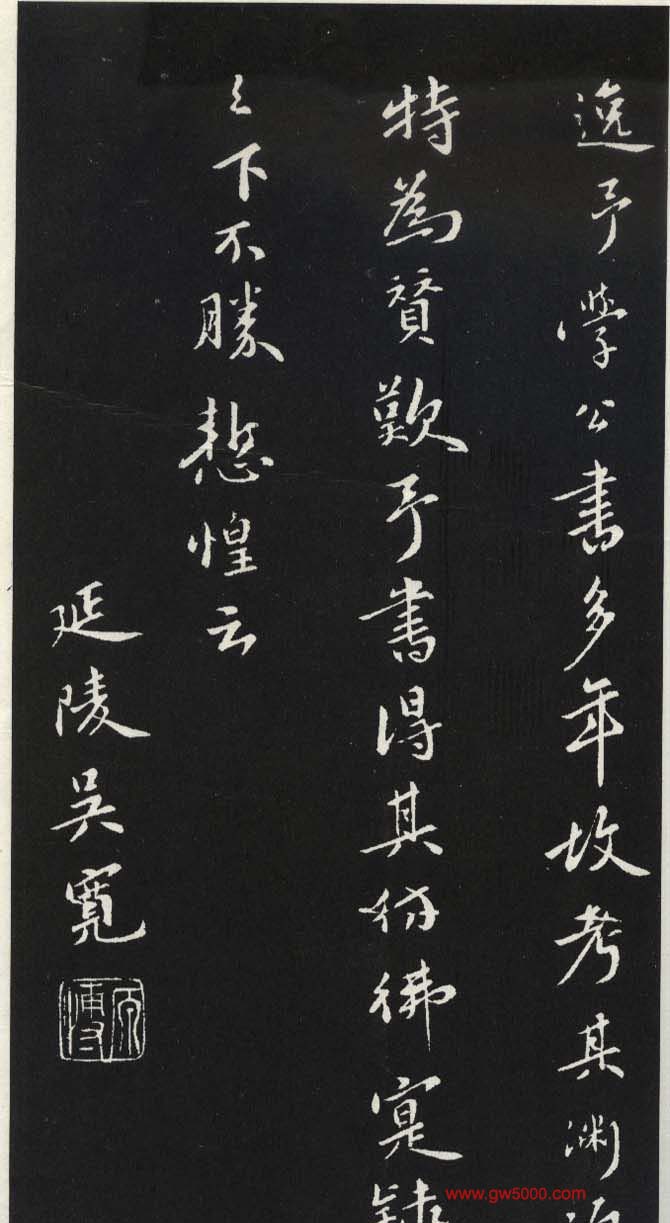 逸予學公書多年故考其渊
特為賛歎予書得其彷彿寔
之下不勝慙惶云
延陵吳寬
原博
www.gw5000.com